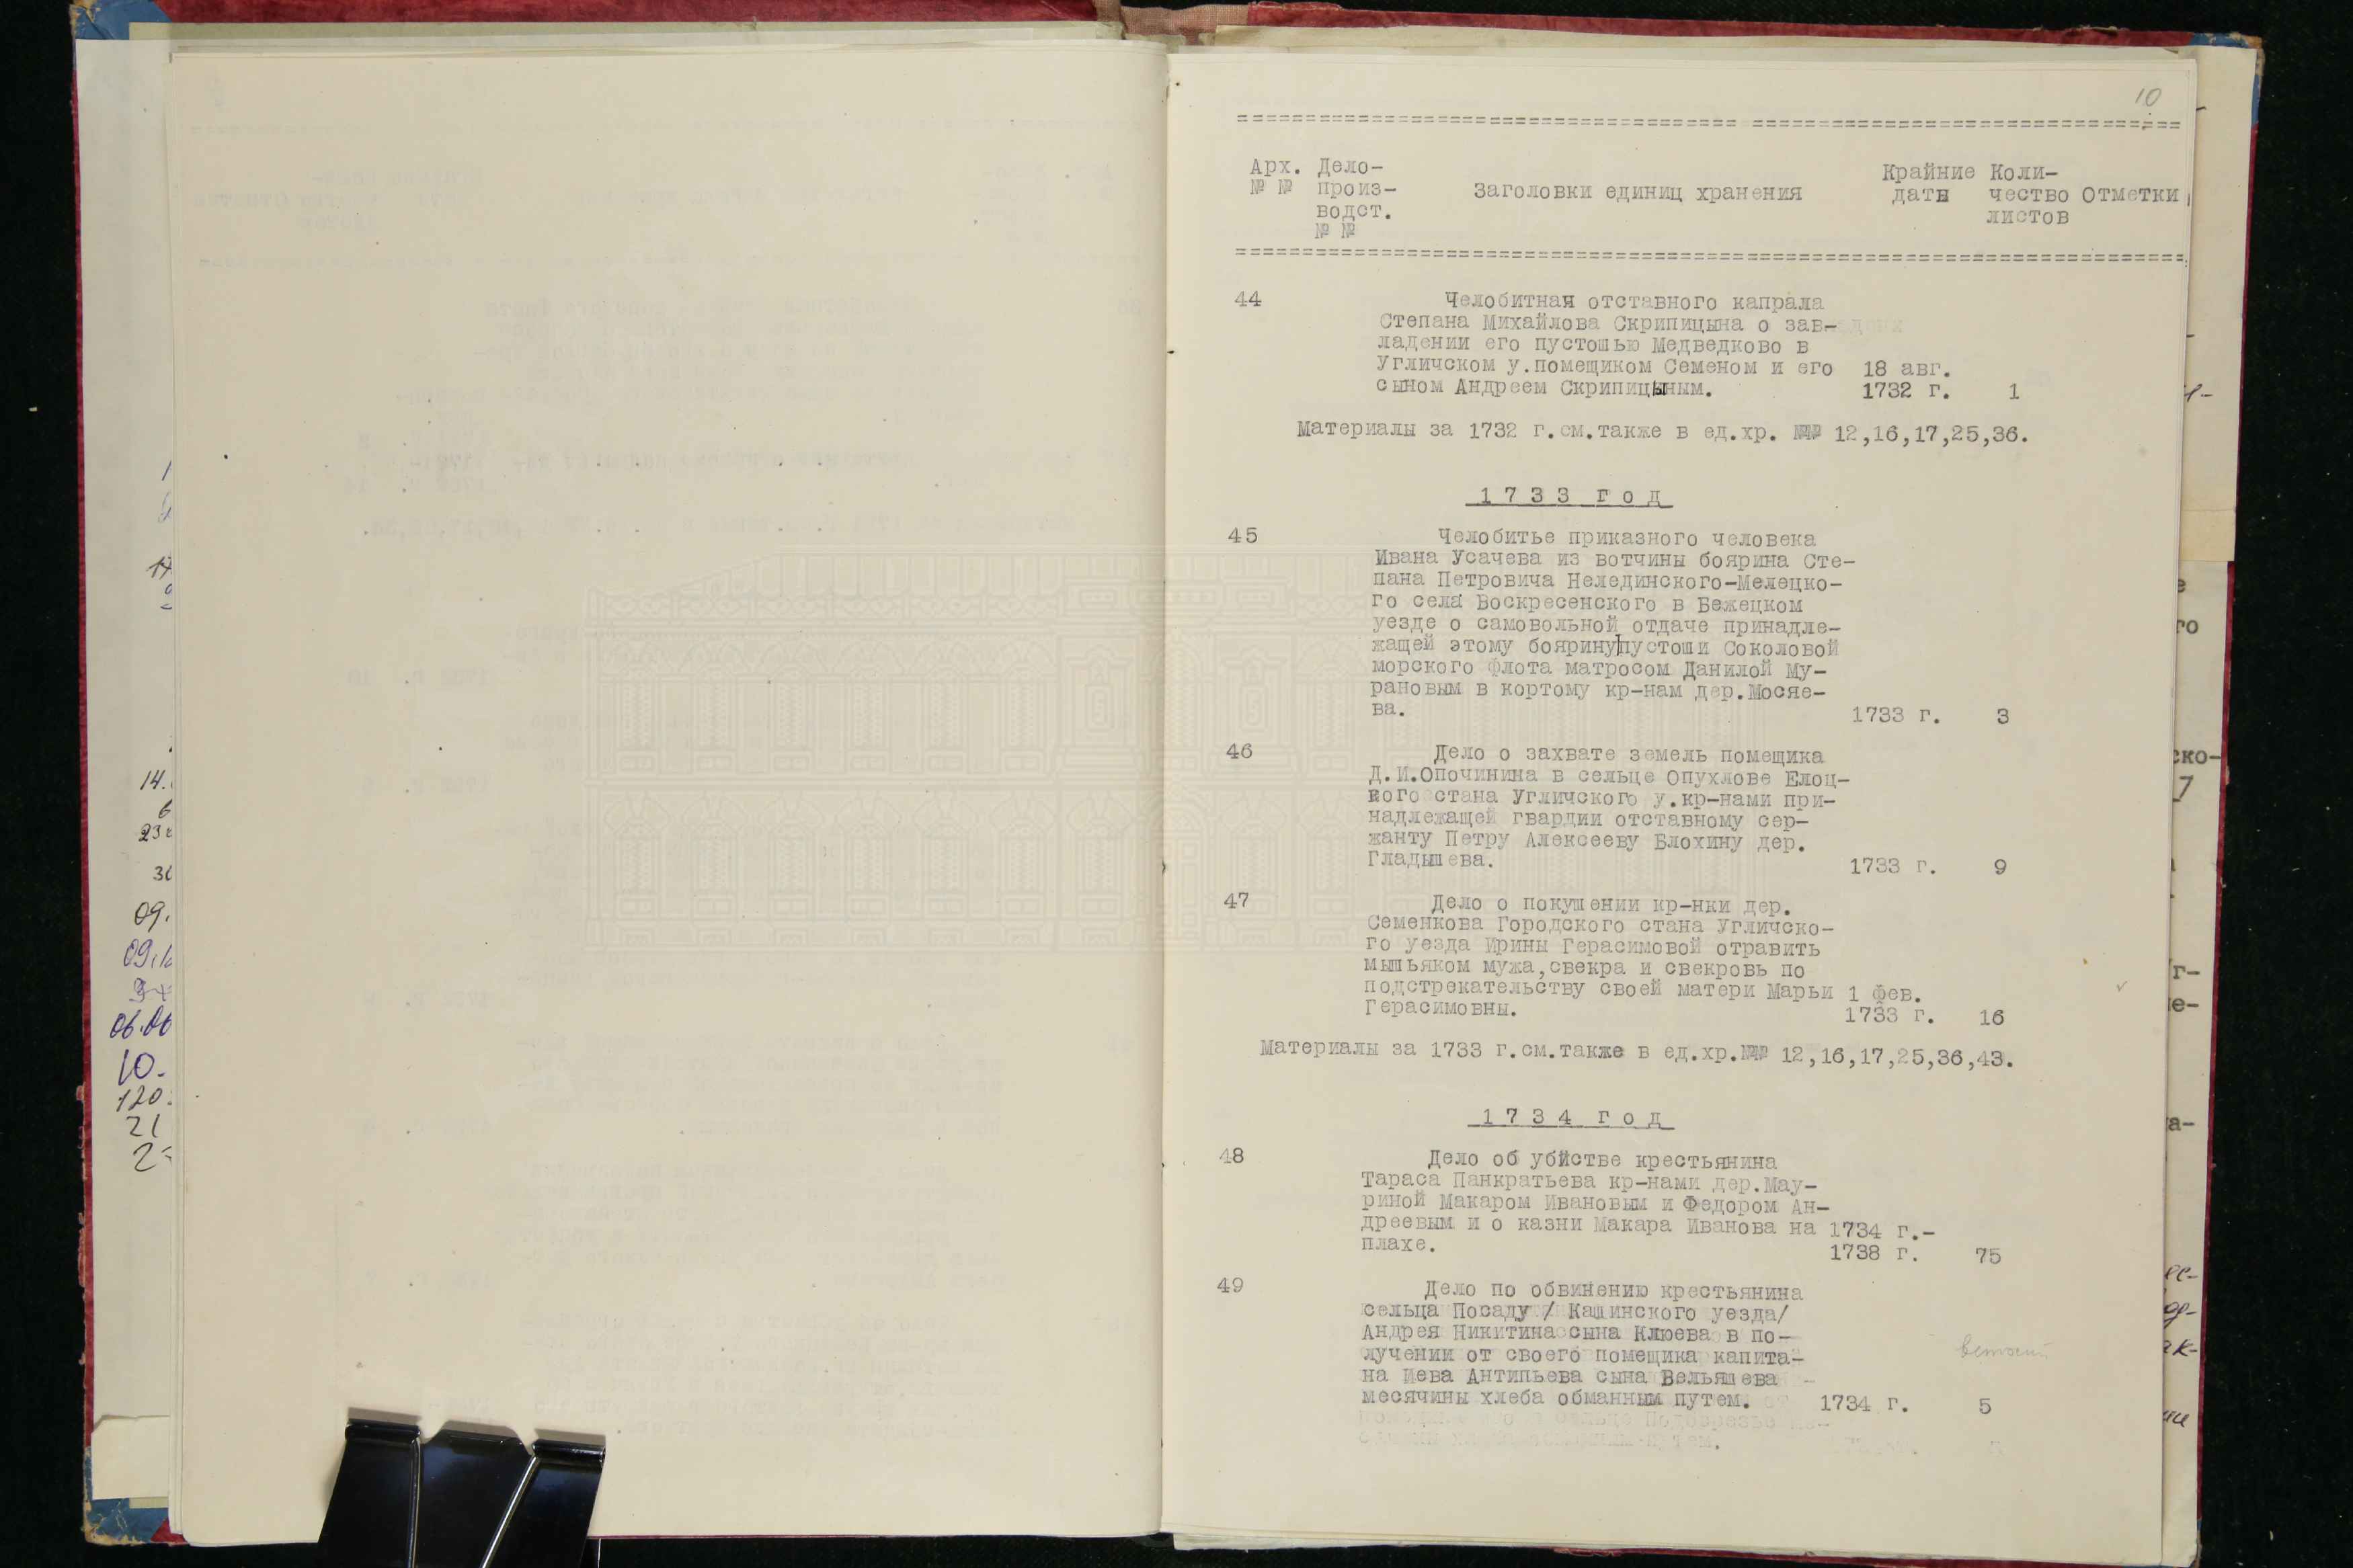 10
Арх. Дело- Крайние Коли-
№ № произ- Заголовки единиц хранения даты чество Отметки
водст. листов
№ №
44 Челобитная отставного капрала
Степана Михайлова Скрипицына о зав-
ладении его пустошью Медведково в
Угличском у.помещиком Семеном и его 18 авг.
сыном Андреем Скрипицыным. 1732 г. 1
Материалы за 1732 г.см.также в ед.хр. №№ 12,16,17,25,36.
1733 год
45 Челобитье приказного человека
Ивана Усачева из вотчины боярина Сте-
пана Петровича Нелединского-Мелецко-
го села Воскресенского в Бежецком
уезде о самовольной отдаче принадле-
жащей этому боярину пустоши Соколовой
морского флота матросом Данилой Му-
рановым в кортому кр-нам дер.Мосяе-
ва. 1733 г. 3
46 Дело о захвате земель помещика
Д.И.Опочинина в сельце Опухлове Елоц-
кого стана Угличского у.кр-нами при-
надлежащей гвардии отставному сер-
жанту Петру Алексееву Блохину дер.
Гладышева. 1733 г. 9
47 Дело о покушении кр-нки дер.
Семенкова Городского стана Угличско-
го уезда Ирины Герасимовой отравить
мышьяком мужа,свекра и свекровь по
подстрекательству своей матери Марьи 1 фев.
Герасимовны. 1733 г. 16
Материалы за 1733 г.см.также в ед.хр.№№ 12,16,17,25,36,43.
1734 год
48 Дело об убйстве крестьянина
Тараса Панкратьева кр-нами дер.Мау-
риной Макаром Ивановым и Федором Ан-
дреевым и о казни Макара Иванова на 1734 г.-
плахе. 1738 г. 75
49 Дело по обвинению крестьянина
сельца Посаду / Кашинского уезда/
Андрея Никитина сына Клюева в по-
лучении от своего помещика капита-
на Иева Антипьева сына Вельяшева
месячины хлеба обманным путем. 1734 г. 5